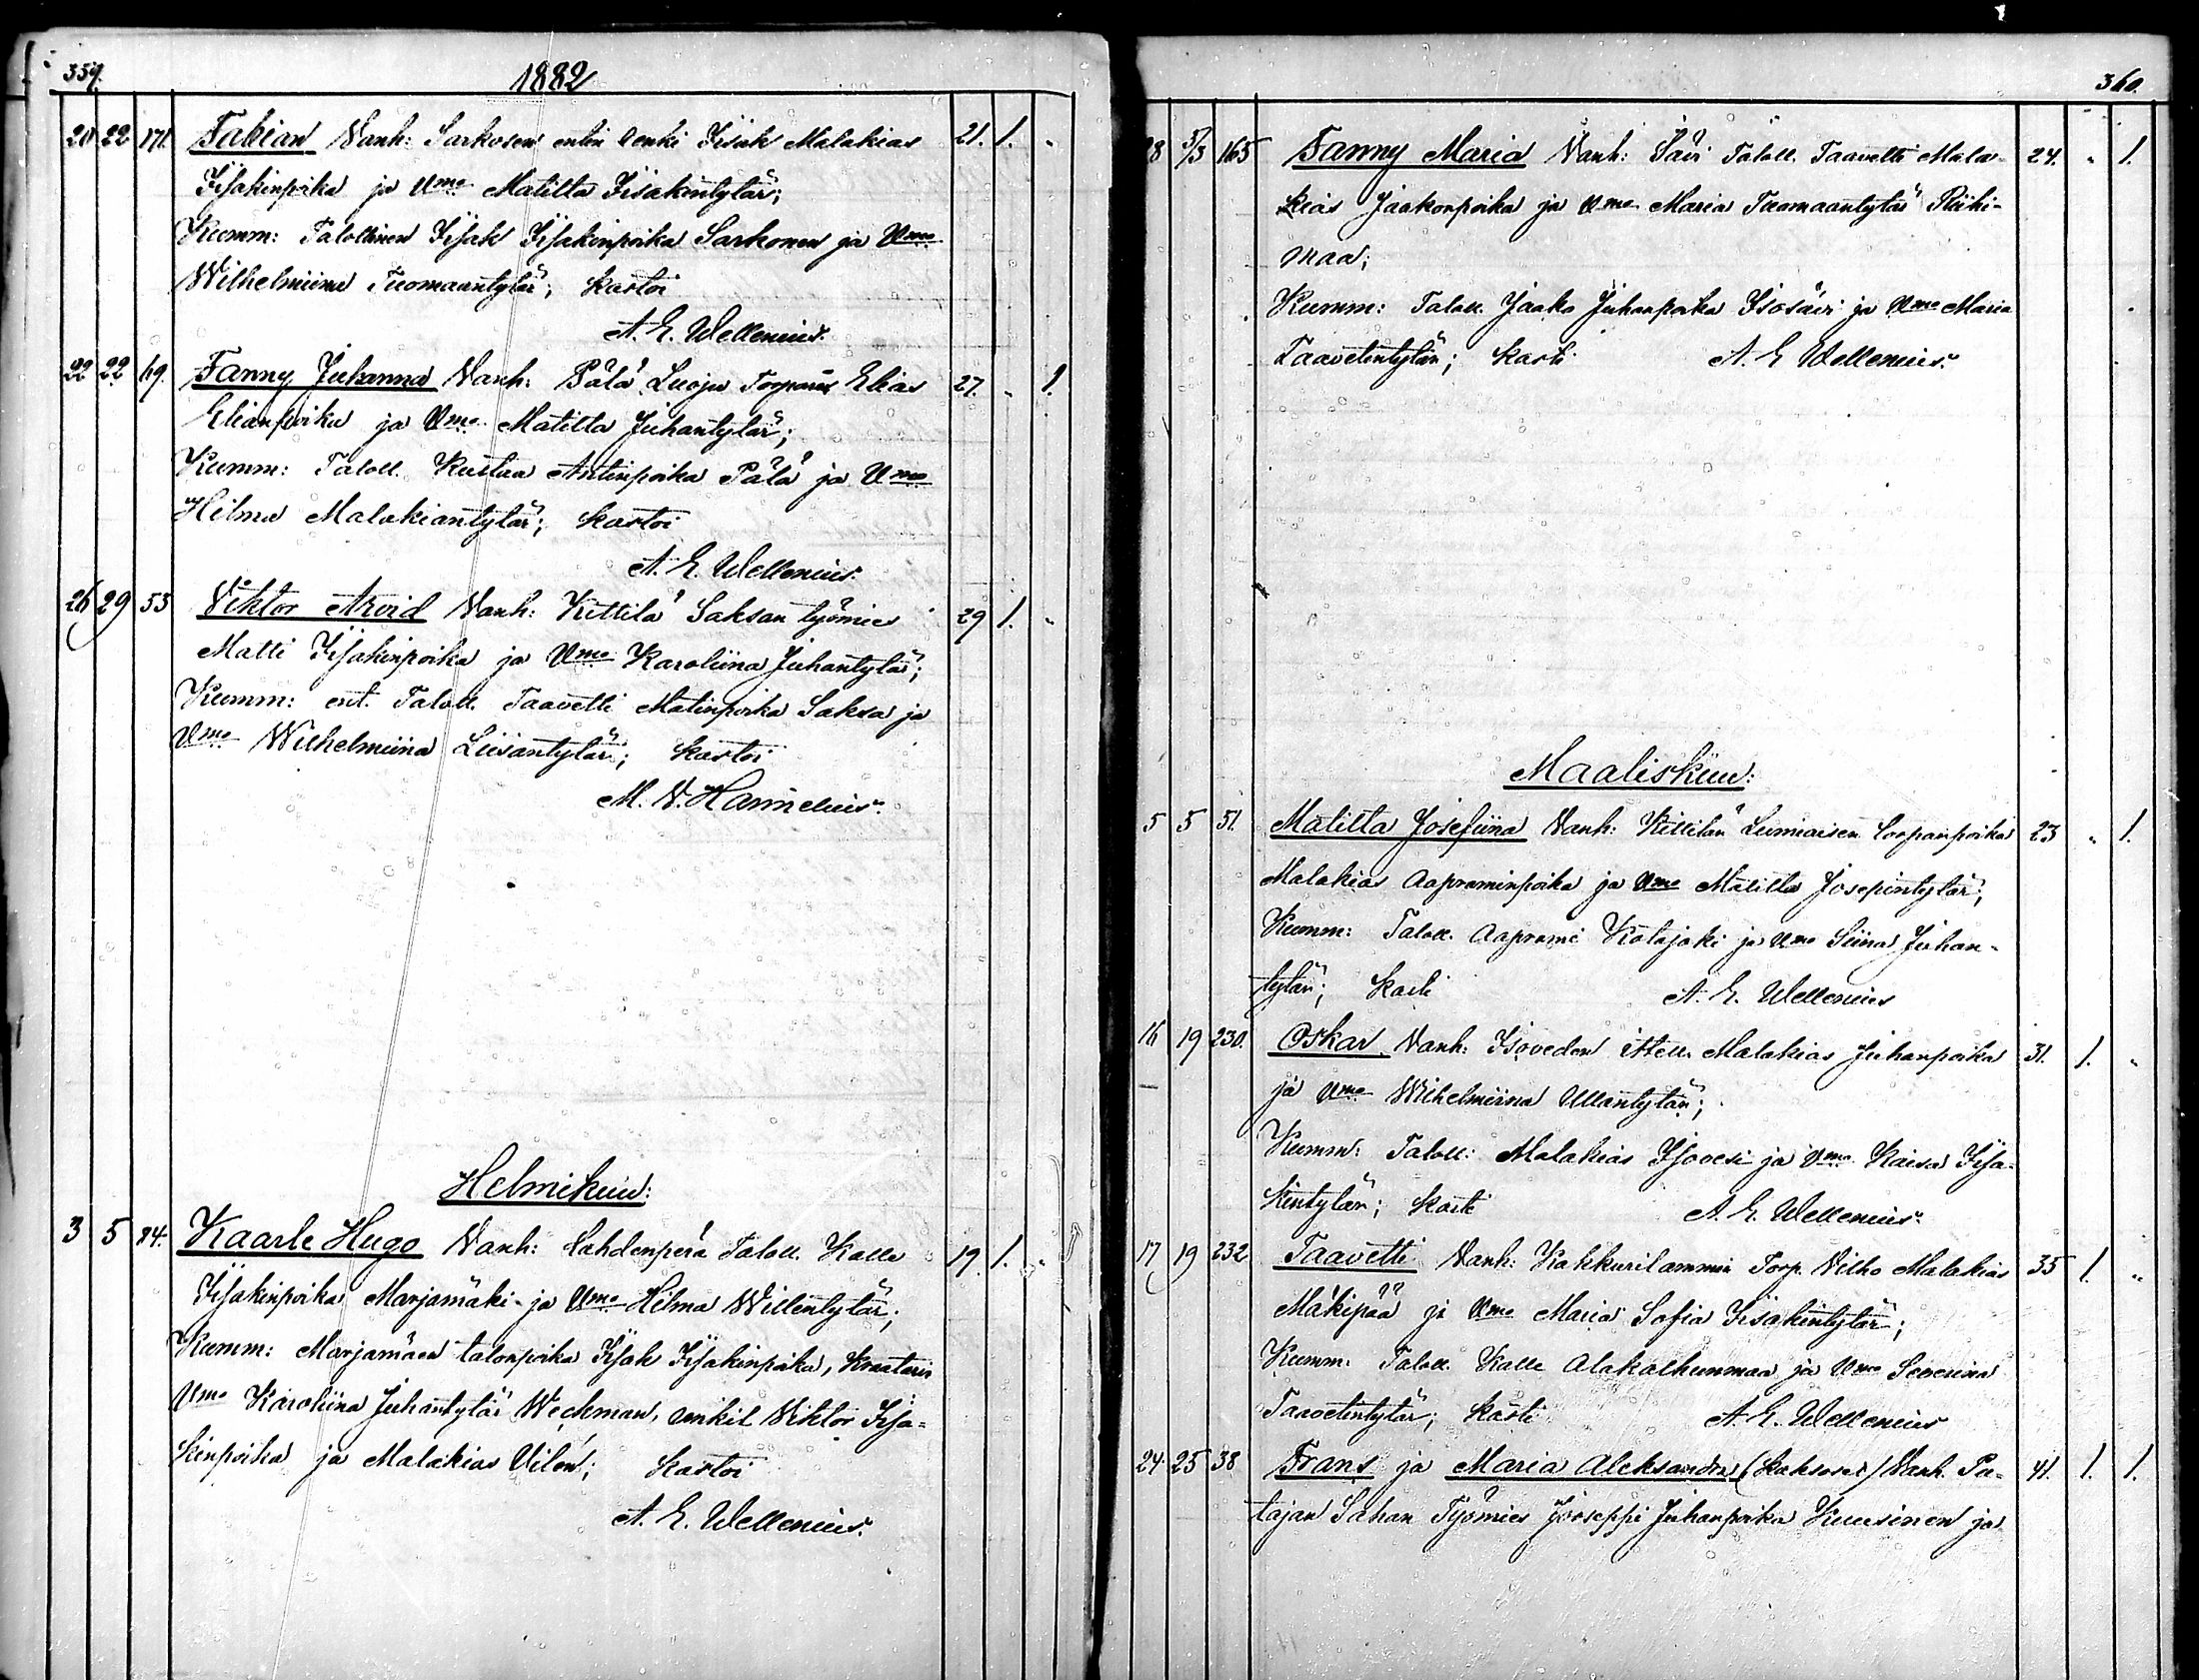 359.
1882
20 22 171. Fabian Vanh: Sarkosen entin renki Iisak Malakias 21. 1. "
Iisakinpoika ja Vmo Matilta Iisakintytär;
Kumm: Talollinen Iisak Iisakinpoika Sarkonen ja Vmo
Wilhelmiina Tuomaantytär; kastoi
A. E. Wellenius.
22 22 69. Fanny Juhanna Vanh: Pälä Luoju Torparis Elias 27. " 1.
Elianpoika ja Vmo Matilta Juhantytär;
Kumm: Taloll. Kustaa Antinpoika Pälä ja Vmo
Hilma Malakiantytär; kastoi
A. E. Wellenius.
26 29 53 Viktor Arvid Vanh: Kittilä Saksan työmies 29 1. "
Matti Iisakinpoika ja Vmo Karoliina Juhantytär;
Kumm: ent. Taloll. Taavetti Matinpoika Saksa ja
Vmo Wilhelmiina Liisantytär; kastoi
M. V. Hannelius.
Helmikuu:
3 5 84. Kaarle Hugo Vanh: Lahdenperä Taloll. Kalle 19. 1. "
Iisakinpoika Marjamäki ja Vmo Hilma Willentytär;
Kumm: Marjamäen talonpoika Iisak Iisakinpoika,
Vmo Karoliina Juhantytär Weckman, Viktor Iisa=
kinpoika ja Malakias Vilén; kastoi
A. E. Wellenius.
360.
28 5/3 165 Fanny Maria Vanh: Sävi Taloll. Taavetti Mala- 24. " 1.
kias Jaakonpoika ja Vmo Maria Tuomaantytär Riihi-
maa;
Kumm: Taloll. Jaako Juhanpoika Isosävi ja Vmo Maria
Taavetintytär; kasti A. E Wellenius.
Maaliskuu:
5 5 51. Matilta Josefiina Vanh: Kittilän Lumiaisen loopanpoika 23 " 1.
Malakias Aapraminpoika ja Vmo Matilta Josepintytär;
Kumm: Taloll. Aaprami Kotajoki ja Vmo Siina Juhan-
tytär; kasti A. E. Wellenius
16 19 230. Oskar Vanh: Isoveden itsell. Malakias Juhanpoika 31. 1. "
ja Vmo Wilhelmiina Ullantytär;
Kumm: Taloll: Malakias Isovesi ja Vmo Kaisa Iisa-
kintytär; kasti A. E. Wellenius.
17 19 232 Taavetti Vanh: Kakkurilammin Torp. Vilho Malakias 35 1. "
Mäkipää ja Vmo Maria Sofia Iisakintytär;
Kumm: Taloll. Kalle Alakalhunmaa ja Vmo Severina
Taavetintytär; kasti A. E. Wellenius
24 25 38 Frans ja Maria Aleksandra (Kaksoset) Vanh. Pa- 41. 1. 1.
tajan Sahan Työmies Jooseppi Juhanpoika Kuusinen ja